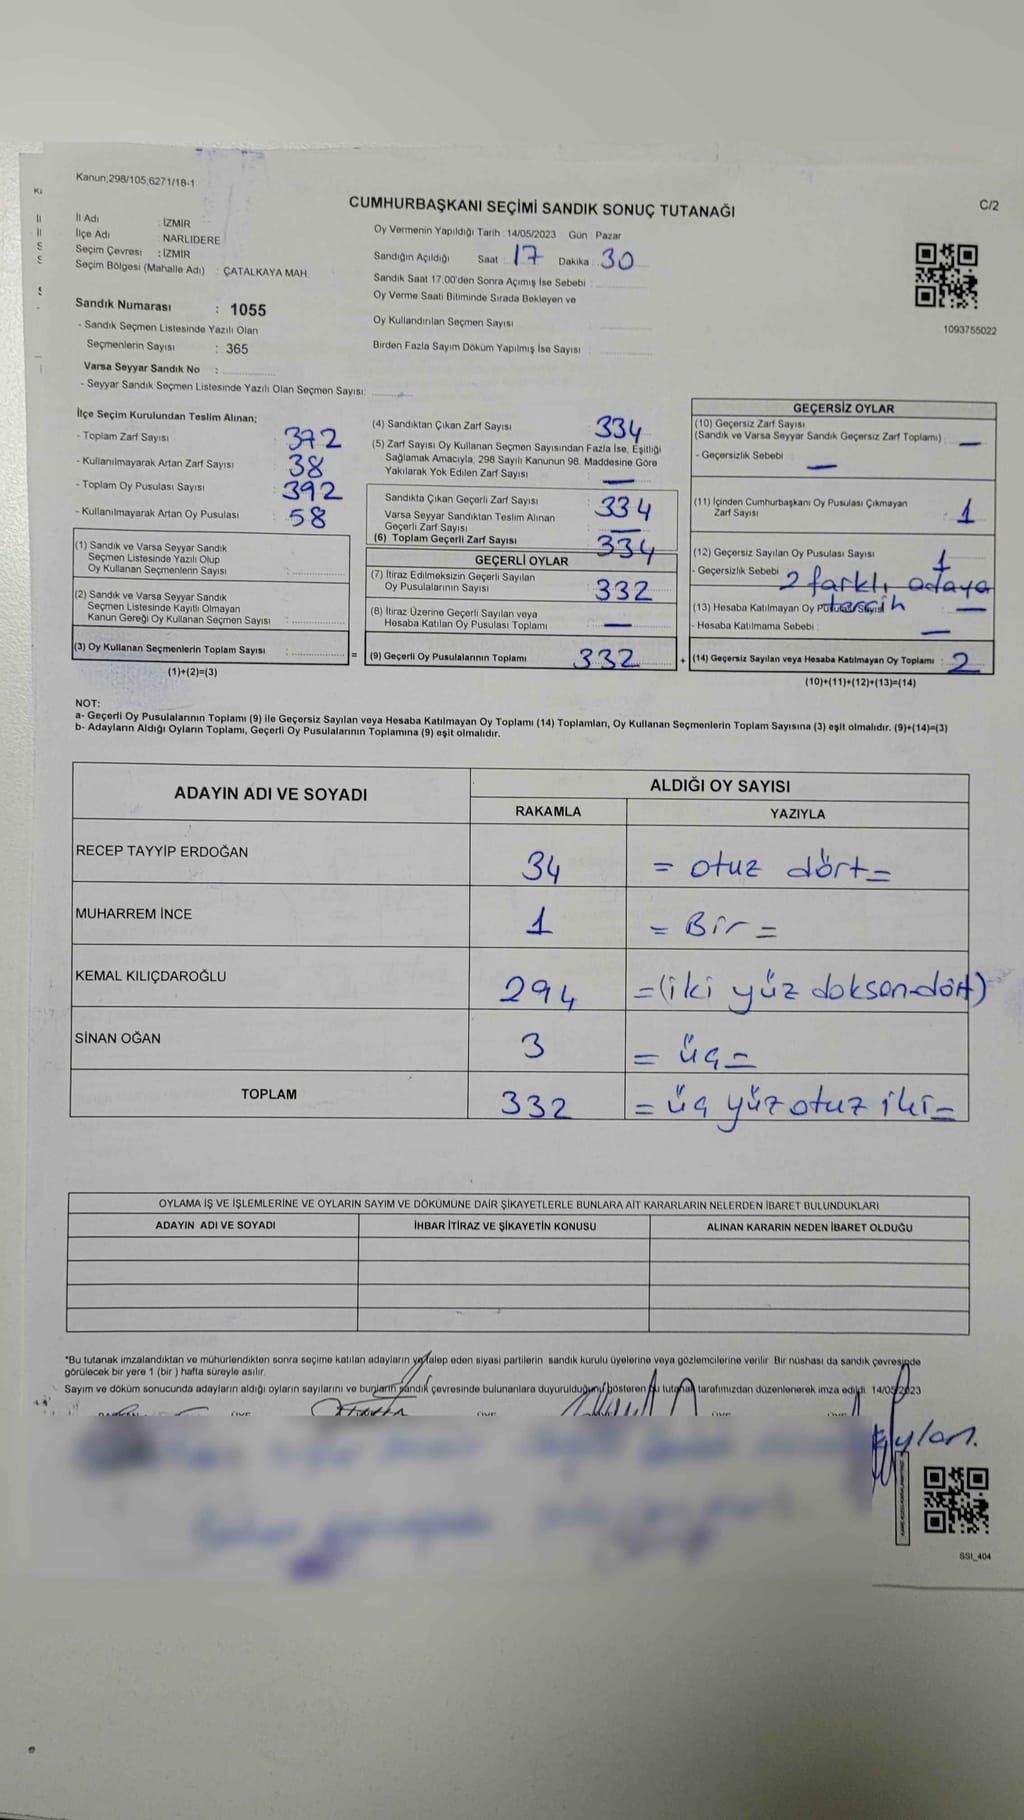 Kanun;298/105,6271/18-1
CUMHURBAŞKANI SEÇİMİ SANDIK SONUÇ TUTANAĞI
C/2
İl Adı : İZMİR
İlçe Adı : NARLIDERE
Seçim Çevresi : İZMİR
Seçim Bölgesi (Mahalle Adı) : ÇATALKAYA MAH.
Sandık Numarası : 1055
- Sandık Seçmen Listesinde Yazılı Olan
Seçmenlerin Sayısı : 365
Varsa Seyyar Sandık No :
- Seyyar Sandık Seçmen Listesinde Yazılı Olan Seçmen Sayısı:
Oy Vermenin Yapıldığı Tarih : 14/05/2023 Gün : Pazar
Sandığın Açıldığı Saat : 17 Dakika : 30
Sandık Saat 17:00'den Sonra Açımış İse Sebebi :
Oy Verme Saati Bitiminde Sırada Bekleyen ve
Oy Kullandırılan Seçmen Sayısı
Birden Fazla Sayım Döküm Yapılmış İse Sayısı :
1093755022
İlçe Seçim Kurulundan Teslim Alınan;
- Toplam Zarf Sayısı 372
- Kullanılmayarak Artan Zarf Sayısı 38
- Toplam Oy Pusulası Sayısı 392
- Kullanılmayarak Artan Oy Pusulası 58
(1) Sandık ve Varsa Seyyar Sandık
Seçmen Listesinde Yazılı Olup
Oy Kullanan Seçmenlerin Sayısı :
(2) Sandık ve Varsa Seyyar Sandık
Seçmen Listesinde Kayıtlı Olmayan
Kanun Gereği Oy Kullanan Seçmen Sayısı :
(3) Oy Kullanan Seçmenlerin Toplam Sayısı :
(1)+(2)=(3)
=
(4) Sandıktan Çıkan Zarf Sayısı 334
(5) Zarf Sayısı Oy Kullanan Seçmen Sayısından Fazla İse, Eşitliği
Sağlamak Amacıyla, 298 Sayılı Kanunun 98. Maddesine Göre
Yakılarak Yok Edilen Zarf Sayısı —
Sandıkta Çıkan Geçerli Zarf Sayısı 334
Varsa Seyyar Sandıktan Teslim Alınan
Geçerli Zarf Sayısı —
(6) Toplam Geçerli Zarf Sayısı 334
GEÇERLİ OYLAR
(7) İtiraz Edilmeksizin Geçerli Sayılan
Oy Pusulalarının Sayısı 332
(8) İtiraz Üzerine Geçerli Sayılan veya
Hesaba Katılan Oy Pusulası Toplamı —
(9) Geçerli Oy Pusulalarının Toplamı 332
+
GEÇERSİZ OYLAR
(10) Geçersiz Zarf Sayısı
(Sandık ve Varsa Seyyar Sandık Geçersiz Zarf Toplamı) —
- Geçersizlik Sebebi : —
(11) İçinden Cumhurbaşkanı Oy Pusulası Çıkmayan
Zarf Sayısı 1
(12) Geçersiz Sayılan Oy Pusulası Sayısı 1
- Geçersizlik Sebebi 2 farklı adaya
tercih
(13) Hesaba Katılmayan Oy Pusulası Sayısı —
- Hesaba Katılmama Sebebi : —
(14) Geçersiz Sayılan veya Hesaba Katılmayan Oy Toplamı : 2
(10)+(11)+(12)+(13)=(14)
NOT:
a- Geçerli Oy Pusulalarının Toplamı (9) ile Geçersiz Sayılan veya Hesaba Katılmayan Oy Toplamı (14) Toplamları, Oy Kullanan Seçmenlerin Toplam Sayısına (3) eşit olmalıdır. (9)+(14)=(3)
b- Adayların Aldığı Oyların Toplamı, Geçerli Oy Pusulalarının Toplamına (9) eşit olmalıdır.
ADAYIN ADI VE SOYADI
ALDIĞI OY SAYISI
RAKAMLA YAZIYLA
RECEP TAYYİP ERDOĞAN 34 = otuz dört =
MUHARREM İNCE 1 = Bir =
KEMAL KILIÇDAROĞLU 294 =(iki yüz doksan dört)
SİNAN OĞAN 3 = üç =
TOPLAM 332 = üç yüz otuz iki =
OYLAMA İŞ VE İŞLEMLERİNE VE OYLARIN SAYIM VE DÖKÜMÜNE DAİR ŞİKAYETLERLE BUNLARA AİT KARARLARIN NELERDEN İBARET BULUNDUKLARI
ADAYIN ADI VE SOYADI İHBAR İTİRAZ VE ŞİKAYETİN KONUSU ALINAN KARARIN NEDEN İBARET OLDUĞU
*Bu tutanak imzalandıktan ve mühürlendikten sonra seçime katılan adayların ve talep eden siyasi partilerin sandık kurulu üyelerine veya gözlemcilerine verilir. Bir nüshası da sandık çevresinde
görülecek bir yere 1 (bir) hafta süreyle asılır.
Sayım ve döküm sonucunda adayların aldığı oyların sayılarını ve bunların sandık çevresinde bulunanlara duyurulduğunu gösteren bu tutanak tarafımızdan düzenlenerek imza edildi. 14/05/2023
SSI_404